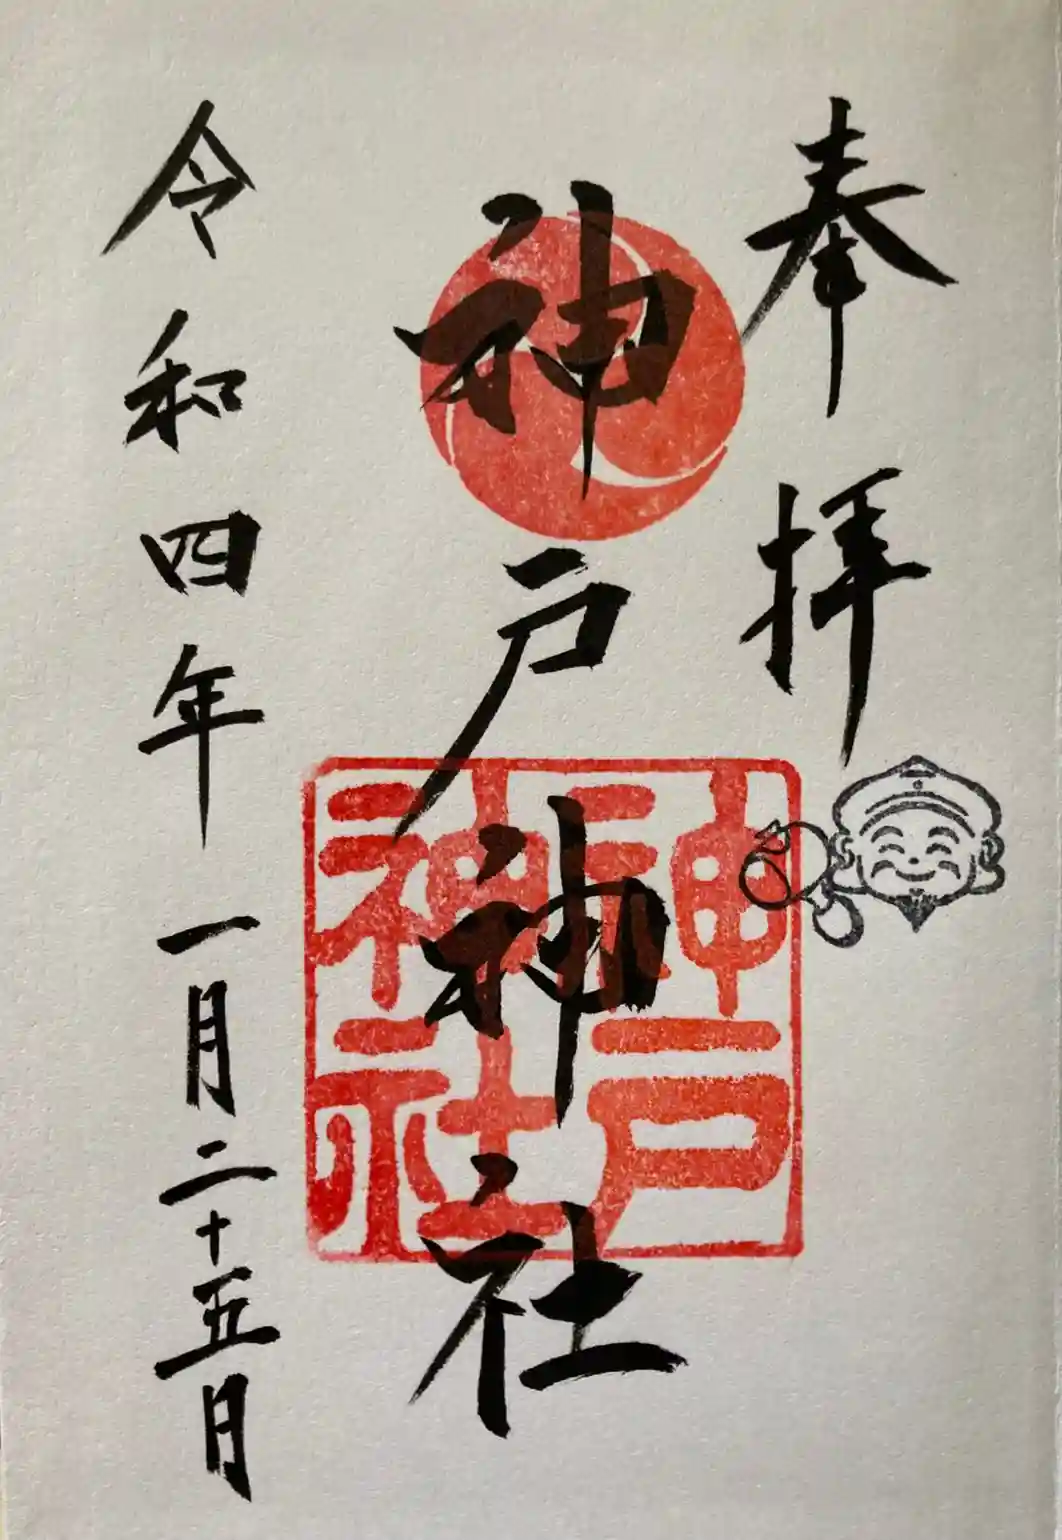 奉拝
神戸神社
神戸神社
令和四年一月二十五月